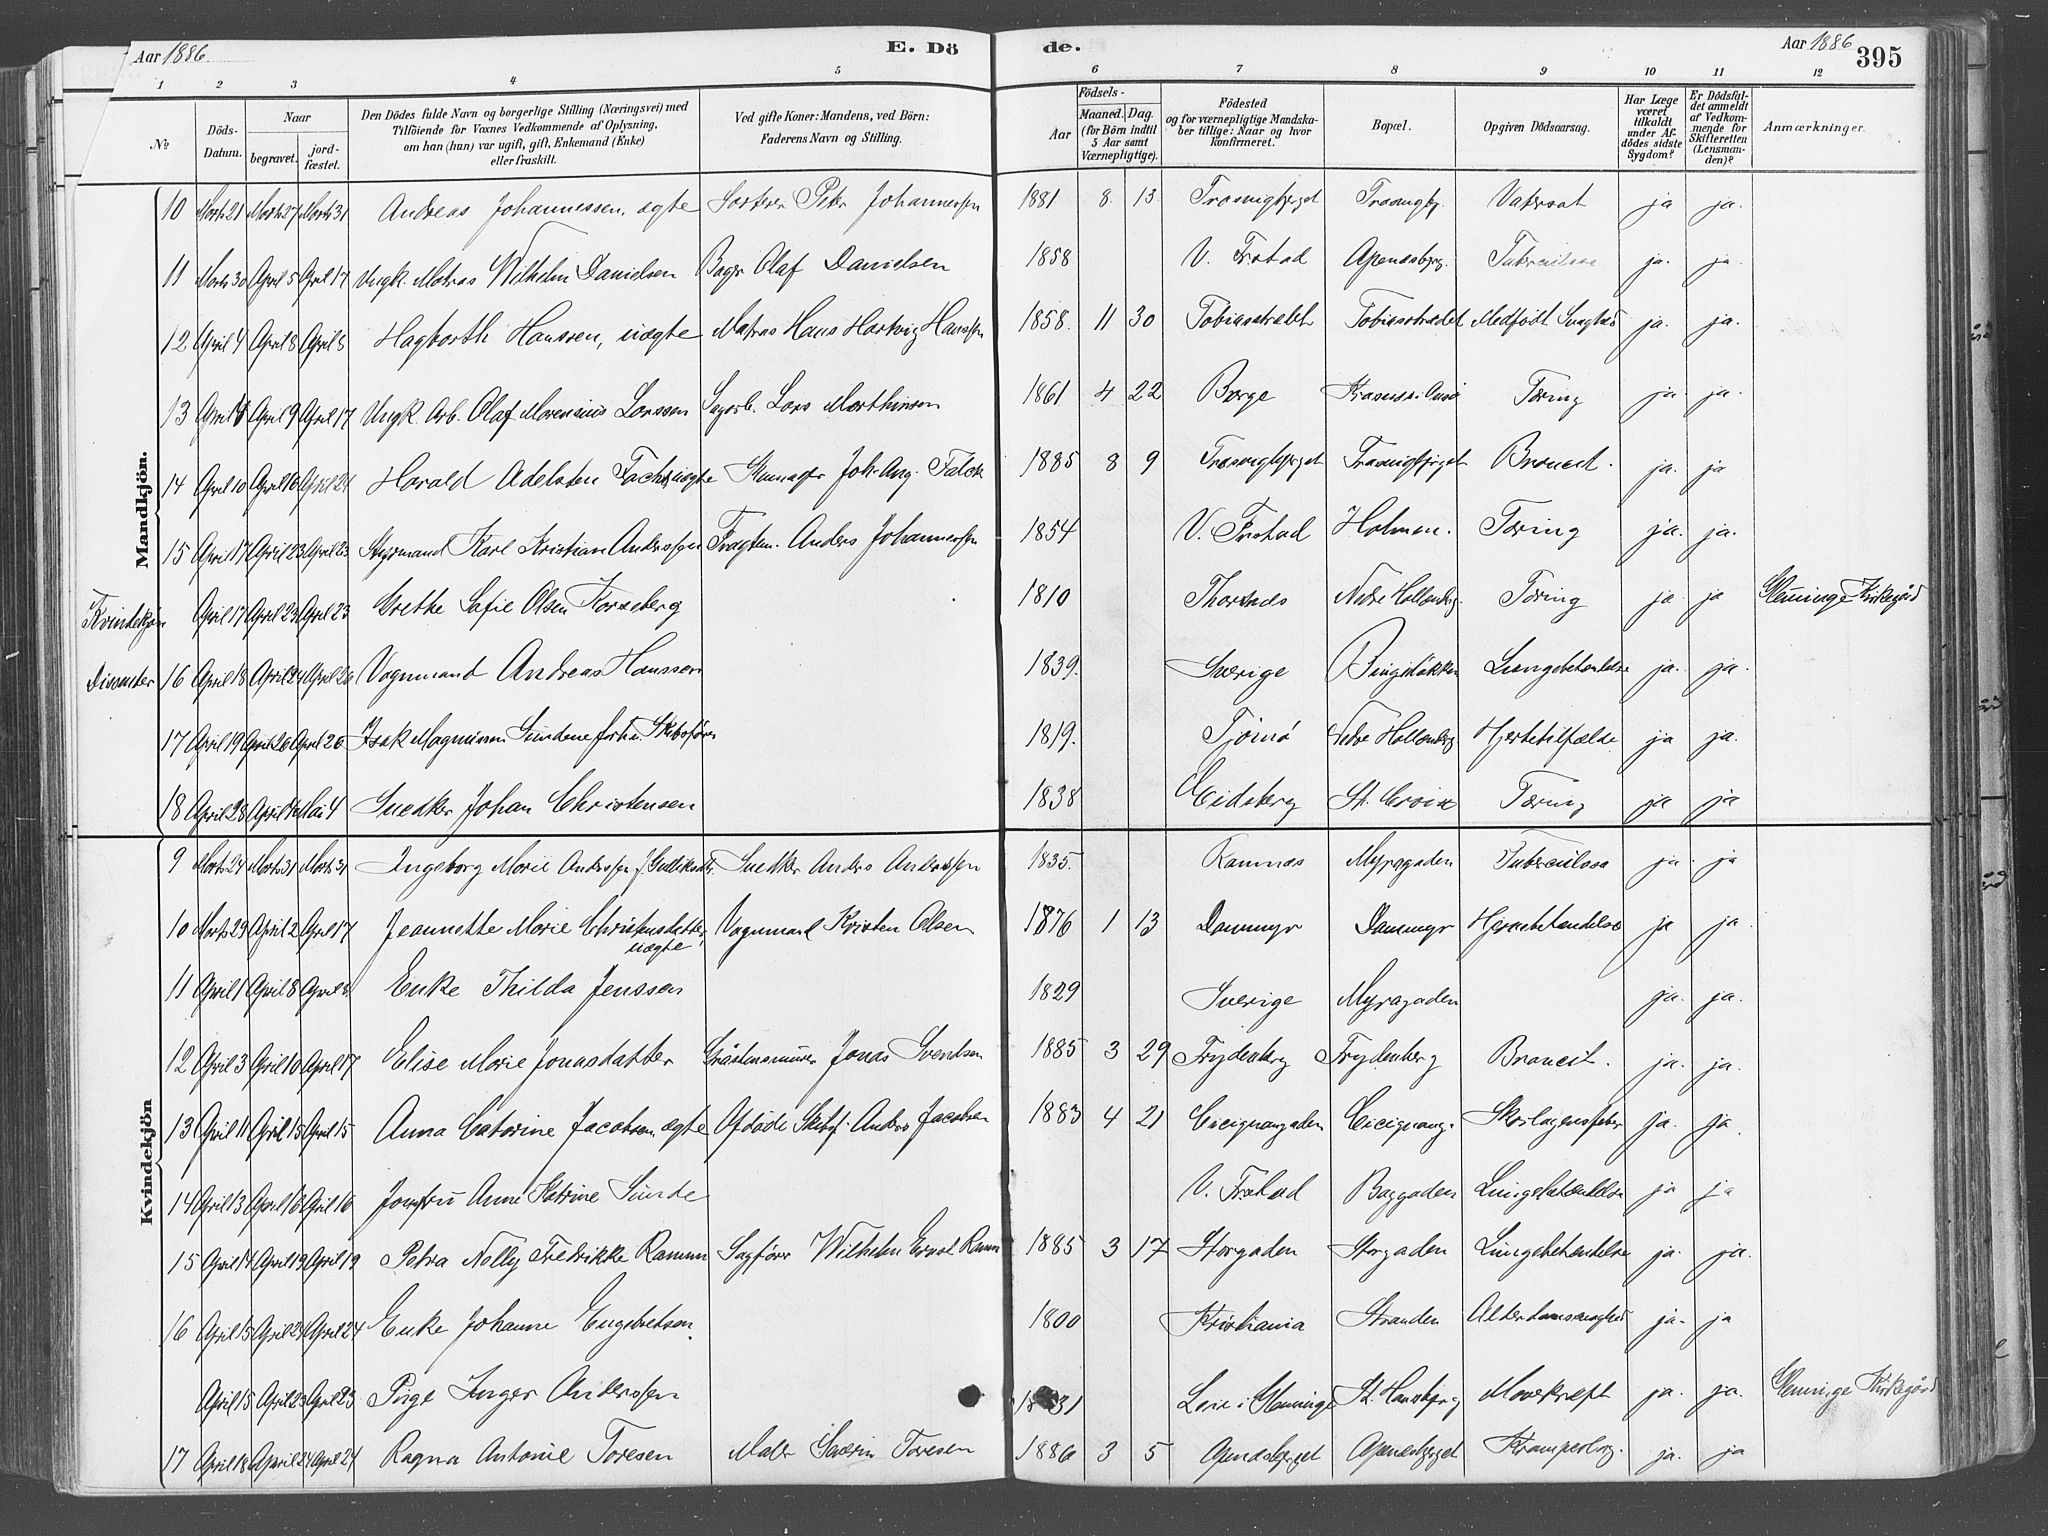 Aar 1886 E. Dö de. Aar 1886 395
1 2 3 4 5 6 7 8 9 10 11 12
№ Döds-Datum. Naar begravet. jordfæstet. Den Dödes fulde Navn og borgerlige Stilling (Næringsvei) med Tilföiende for Voxnes Vedkommende af Oplysning, om han (hun) var ugift, gift, Enkemand (Enke) eller fraskilt. Ved gifte Koner: Mandens, ved Börn: Faderens Navn og Stilling. Födsels- Aar Maaned. Dag. (for Börn indtil 5 Aar samt Værnepligtige). Födested og for værnepligtige Mandskaber tillige: Naar og hvor konfirmeret. Bopæl. Opgiven Dödsaarsag. Har Læge været tilkaldt under Afdödes sidste Sygdom? Er Dödsfaldet anmeldt af Vedkommende for Skifteretten (Lensmanden)? Anmærkninger.
Mandkjön.
10 Marts 21 Marts 27 Marts 31 Andreas Johannessen, ægte Sorterer Petr Johannessen 1881 8 13 Trosvigbjerget Trosvigbj. Vatersot ja ja.
11 Marts 30 April 5 April 17 Ungk. Matros Wilhelm Danielsen Bager Olaf Danielsen 1858 V. Frstad Apenesbjerg. Tuberculose ja. ja.
12 April 4 April 8 April 8 Hagbarth Hanssen, uægte Matros Hans Hartvig Hanssen 1858. 11 30 Tobiasstrædet Tobiasstrædet Medfödt Svaghed ja. ja.
13 April 4 April 9 April 17 Ungk. Arb. Olaf Morensius Larssen Sagarb. Lars Marthinsen 1861 4 22 Borge Tæring ja. ja.
14 April 10 April 16 April 24 Harald Adelsten Falck, uægte Joh. Aug. Falck 1885 8 9 Trosvigbjerget Trosvigbjerget Broncit. ja. ja
15 April 17 April 23 April 23 Styrmand Karl Kristian Anderssen Fragtem. Anders Johannessen 1854 V. Frstad Holmen. Tæring ja. ja.
Kvindekjön April 17 April 23 April 23 Grethe Sofie Olsen Korseberg 1810 Thorsnæs Nedre Hollenderg. Tæring ja ja Glemminge Kirkegård
Dissenter 16 April 18 April 24 April 26 Vognmand Andreas Hanssen 1839. Sverige Bingeløkken Lungebetændelse ja. ja.
17 April 19 April 26 April 26 Isak Magnussen Sundene forhv. Skibsförer 1819. Tjömö Nedre Hollenderg. Hjertetilfælde ja ja.
18 April 28 Mai 4 Snedker Johan Christensen 1838 Eidsberg St. Croix Tæring ja ja
Kvindekjön
9 Marts 24 Marts 31 Marts 31 Ingeborg Marie Anderssen f. Gulliksdtr. Snedker Anders Anderssen 1835. Ramnæs Myragaden Tuberculose ja. ja
10 Marts 29 April 2 April 17 Jeannette Marie Christensdatter, uægte Vognmand Kristen Olsen 1876 1 13 Dammyr Dammyr Hjernebetændelse ja ja.
11 April 1 April 8 April 8 Enke Thilda Jenssen 1829 Sverige Myragaden ja. ja.
12 April 3 April 10 April 17 Elise Marie Jonasdatter Gråstensmurer Jonas Svendsen 1885 3 29 Frydenberg Frydenberg Broncit. ja. ja.
13 April 11 April 15 April 15 Anna Catorine Jacobsen, ægte Afdöde Skibsf. Anders Jacobsen 1883 4 21 Cicignongaden Cicignong. Skarlagensfeber ja. ja.
14 April 13 April 16 April 16 Jomfru Anne Katrine Sunde V. Frstad Baggaden Lungebetændelse ja ja
15 April 14 April 19 April 19 Petra Nelly Fredrikke Ramm Sagförer Wilhelm Ernst Ramm 1885 3 17 Storgaden Storgaden Lungebetændelse ja. ja.
16 April 15 April 24 April 24 Enke Johanne Engebretsen. 1800 Kristiania Stranden Alderdomssvaghed ja. ja
April 15 April 23 April 23 Pige Inger Anderssen 1831 Leie i Glemminge St. Hansbjerg Mavekræft ja. ja. Glemminge Kirkegård
17 April 18 April 24 April 24 Ragna Antonie Toresen Maler Severin Toresen 1886 3 5 Apenesbjerget Apenesbjerget Krampeslag. ja. ja